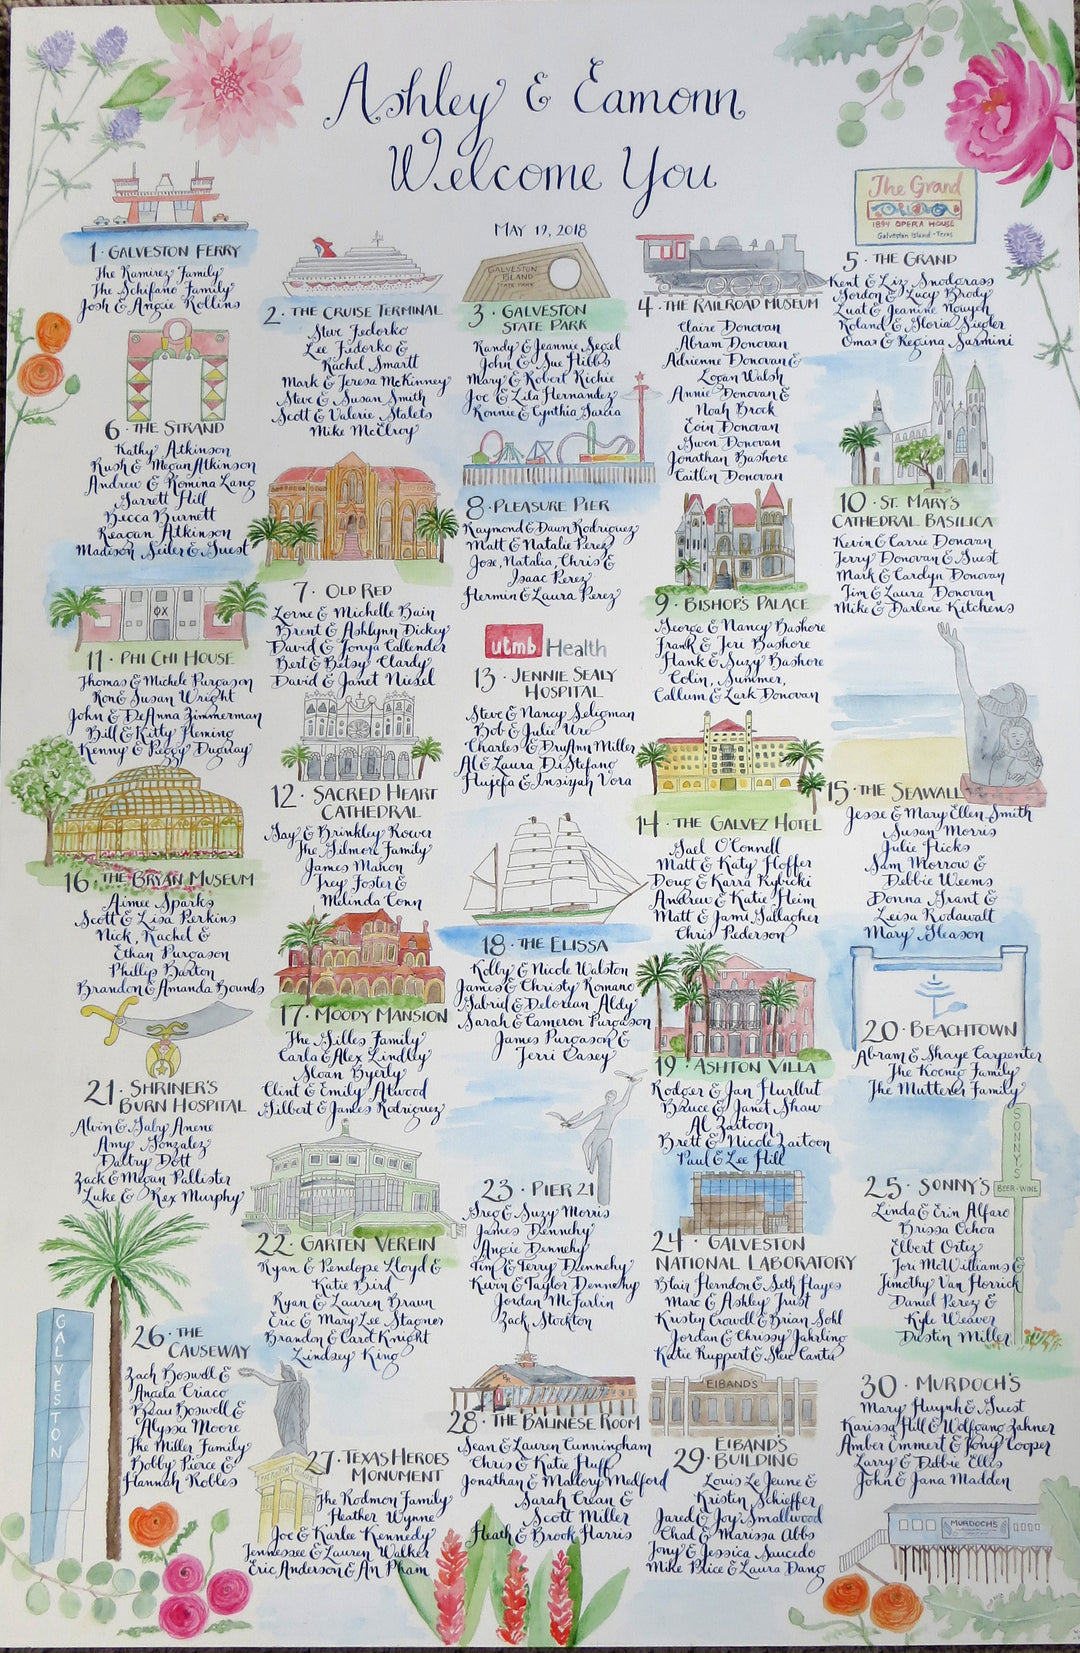 Ashley & Eamonn
Welcome You
MAY 19, 2018
1 · GALVESTON FERRY
The Ramirez Family
The Schifano Family
Josh & Angie Rollins
2 · THE CRUISE TERMINAL
Steve Fedorko
Lee Fedorko &
Rachel Smartt
Mark & Teresa McKinney
Steve & Susan Smith
Scott & Valerie Stalets
Mike McElroy
GALVESTON
ISLAND
STATE PARK
3 · GALVESTON
STATE PARK
Randy & Jeannie Segel
John & Sue Hibbs
Mary & Robert Richie
Joe & Lila Hernandez
Ronnie & Cynthia Garcia
4 · THE RAILROAD MUSEUM
Claire Donovan
Abram Donovan
Adrienne Donovan &
Logan Walsh
Annie Donovan &
Noah Brock
Eoin Donovan
Gwen Donovan
Jonathan Bashore
Caitlin Donovan
The Grand
1894 OPERA HOUSE
Galveston Island · Texas
5 · THE GRAND
Kent & Liz Snodgrass
Gordon & Lucy Brody
Luat & Jeanine Nguyen
Roland & Gloria Siegler
Omar & Regina Sarmini
6 · THE STRAND
Kathy Atkinson
Rush & Megan Atkinson
Andrew & Romina Lang
Garrett Hill
Becca Burnett
Reagan Atkinson
Madison Seiler & Guest
7 · OLD RED
Lorne & Michelle Bain
Brent & Ashlynn Dickey
David & Tonya Callender
Bert & Betsy Clardy
David & Janet Niesel
8 · PLEASURE PIER
Raymond & Dawn Rodriguez
Matt & Natalie Perez
Jose, Natalia, Chris &
Isaac Perez
Hermin & Laura Perez
9 · BISHOP'S PALACE
George & Nancy Bashore
Frank & Jeri Bashore
Hank & Suzy Bashore
Colin, Summer,
Callum & Lark Donovan
10 · ST. MARY'S
CATHEDRAL BASILICA
Kevin & Carrie Donovan
Jerry Donovan & Guest
Mark & Carolyn Donovan
Jim & Laura Donovan
Mike & Darlene Kitchens
ΦX
11 · PHI CHI HOUSE
Thomas & Michele Purgason
Ron & Susan Wright
John & DeAnna Zimmerman
Bill & Kitty Fleming
Kenny & Peggy Duguay
12 · SACRED HEART
CATHEDRAL
Gay & Brinkley Rower
The Gilmore Family
James Mahon
Trey Foster &
Melinda Conn
utmb Health
13 · JENNIE SEALY
HOSPITAL
Steve & Nancy Seligman
Bob & Julie Ure
Charles & DruAnn Miller
Al & Laura DiStefano
Hujefa & Insiyah Vora
14 · THE GALVEZ HOTEL
Gael O'Connell
Matt & Katy Hoffer
Doug & Karra Rybicki
Andrew & Katie Heim
Matt & Jami Gallagher
Chris Pederson
15 · THE SEAWALL
Jesse & Mary Ellen Smith
Susan Morris
Julie Hicks
Sam Morrow &
Debbie Weems
Donna Grant &
Leisa Rodawalt
Mary Gleason
16 · THE BRYAN MUSEUM
Aimee Sparks
Scott & Lisa Perkins
Nick, Rachel &
Ethan Purgason
Phillip Barton
Brandon & Amanda Bounds
17 · MOODY MANSION
The Gilles Family
Carla & Alex Lindley
Sloan Byerly
Clint & Emily Atwood
Gilbert & James Rodriguez
18 · THE ELISSA
Kelly & Nicole Walston
James & Christy Romano
Gabriel & Delorean Aldy
Sarah & Cameron Purgason
James Purgason &
Terri Casey
19 · ASHTON VILLA
Rodger & Jan Hurlbut
Bruce & Janet Shaw
Al Zaitoon
Brett & Nicole Zaitoon
Paul & Lee Hill
20 · BEACHTOWN
Abram & Shaye Carpenter
The Koenig Family
The Mutterer Family
21 · SHRINER'S
BURN HOSPITAL
Alvin & Gaby Anene
Amy Gonzalez
Daltry Dott
Zack & Megan Pallister
Luke & Rex Murphy
22 · GARTEN VEREIN
Ryan & Penelope Lloyd &
Katie Bird
Ryan & Lauren Braun
Eric & Mary Lee Stagner
Brandon & Carol Knight
Lindsey King
23 · PIER 21
Greg & Suzy Morris
James Dennehy
Angie Dennehy
Tim & Terry Dennehy
Kevin & Taylor Dennehy
Jordan McFarlin
Zack Stockton
24 · GALVESTON
NATIONAL LABORATORY
Blair Herndon & Seth Hayes
Marc & Ashley Trust
Kristen Crowell & Brian Sohl
Jordan & Chrissy Jahrling
Katie Ruppert & Stew Cantu
SONNY'S
BEER-WINE
25 · SONNY'S
Linda & Erin Alfaro
Brissa Ochoa
Elbert Ortiz
Tori McWilliams &
Timothy Van Horrick
Daniel Perez &
Kyle Weaver
Dustin Miller
GALVESTON
26 · THE
CAUSEWAY
Zach Boswell &
Angela Criaco
Beau Boswell &
Alyssa Moore
The Miller Family
Bobby Pierce &
Hannah Robles
27 · TEXAS HEROES
MONUMENT
The Rodmon Family
Heather Wynne
Joe & Karlee Kennedy
Tennessee & Lauren Walker
Eric Anderson & An Pham
28 · THE BALINESE ROOM
Sean & Lauren Cunningham
Chris & Katie Huff
Jonathan & Mallory Medford
Sarah Crean &
Scott Miller
Heath & Brook Harris
EIBAND'S
29 · EIBAND'S
BUILDING
Louis LeJeune &
Kristin Schieffer
Jared & Joy Smallwood
Chad & Marissa Abbs
Tony & Jessica Saucedo
Mike Price & Laura Dang
30 · MURDOCH'S
Mary Huynh & Guest
Karissa Hill & Wolfgang Zahner
Amber Emmert & Tony Cooper
Larry & Debbie Elles
John & Jana Madden
MURDOCH'S